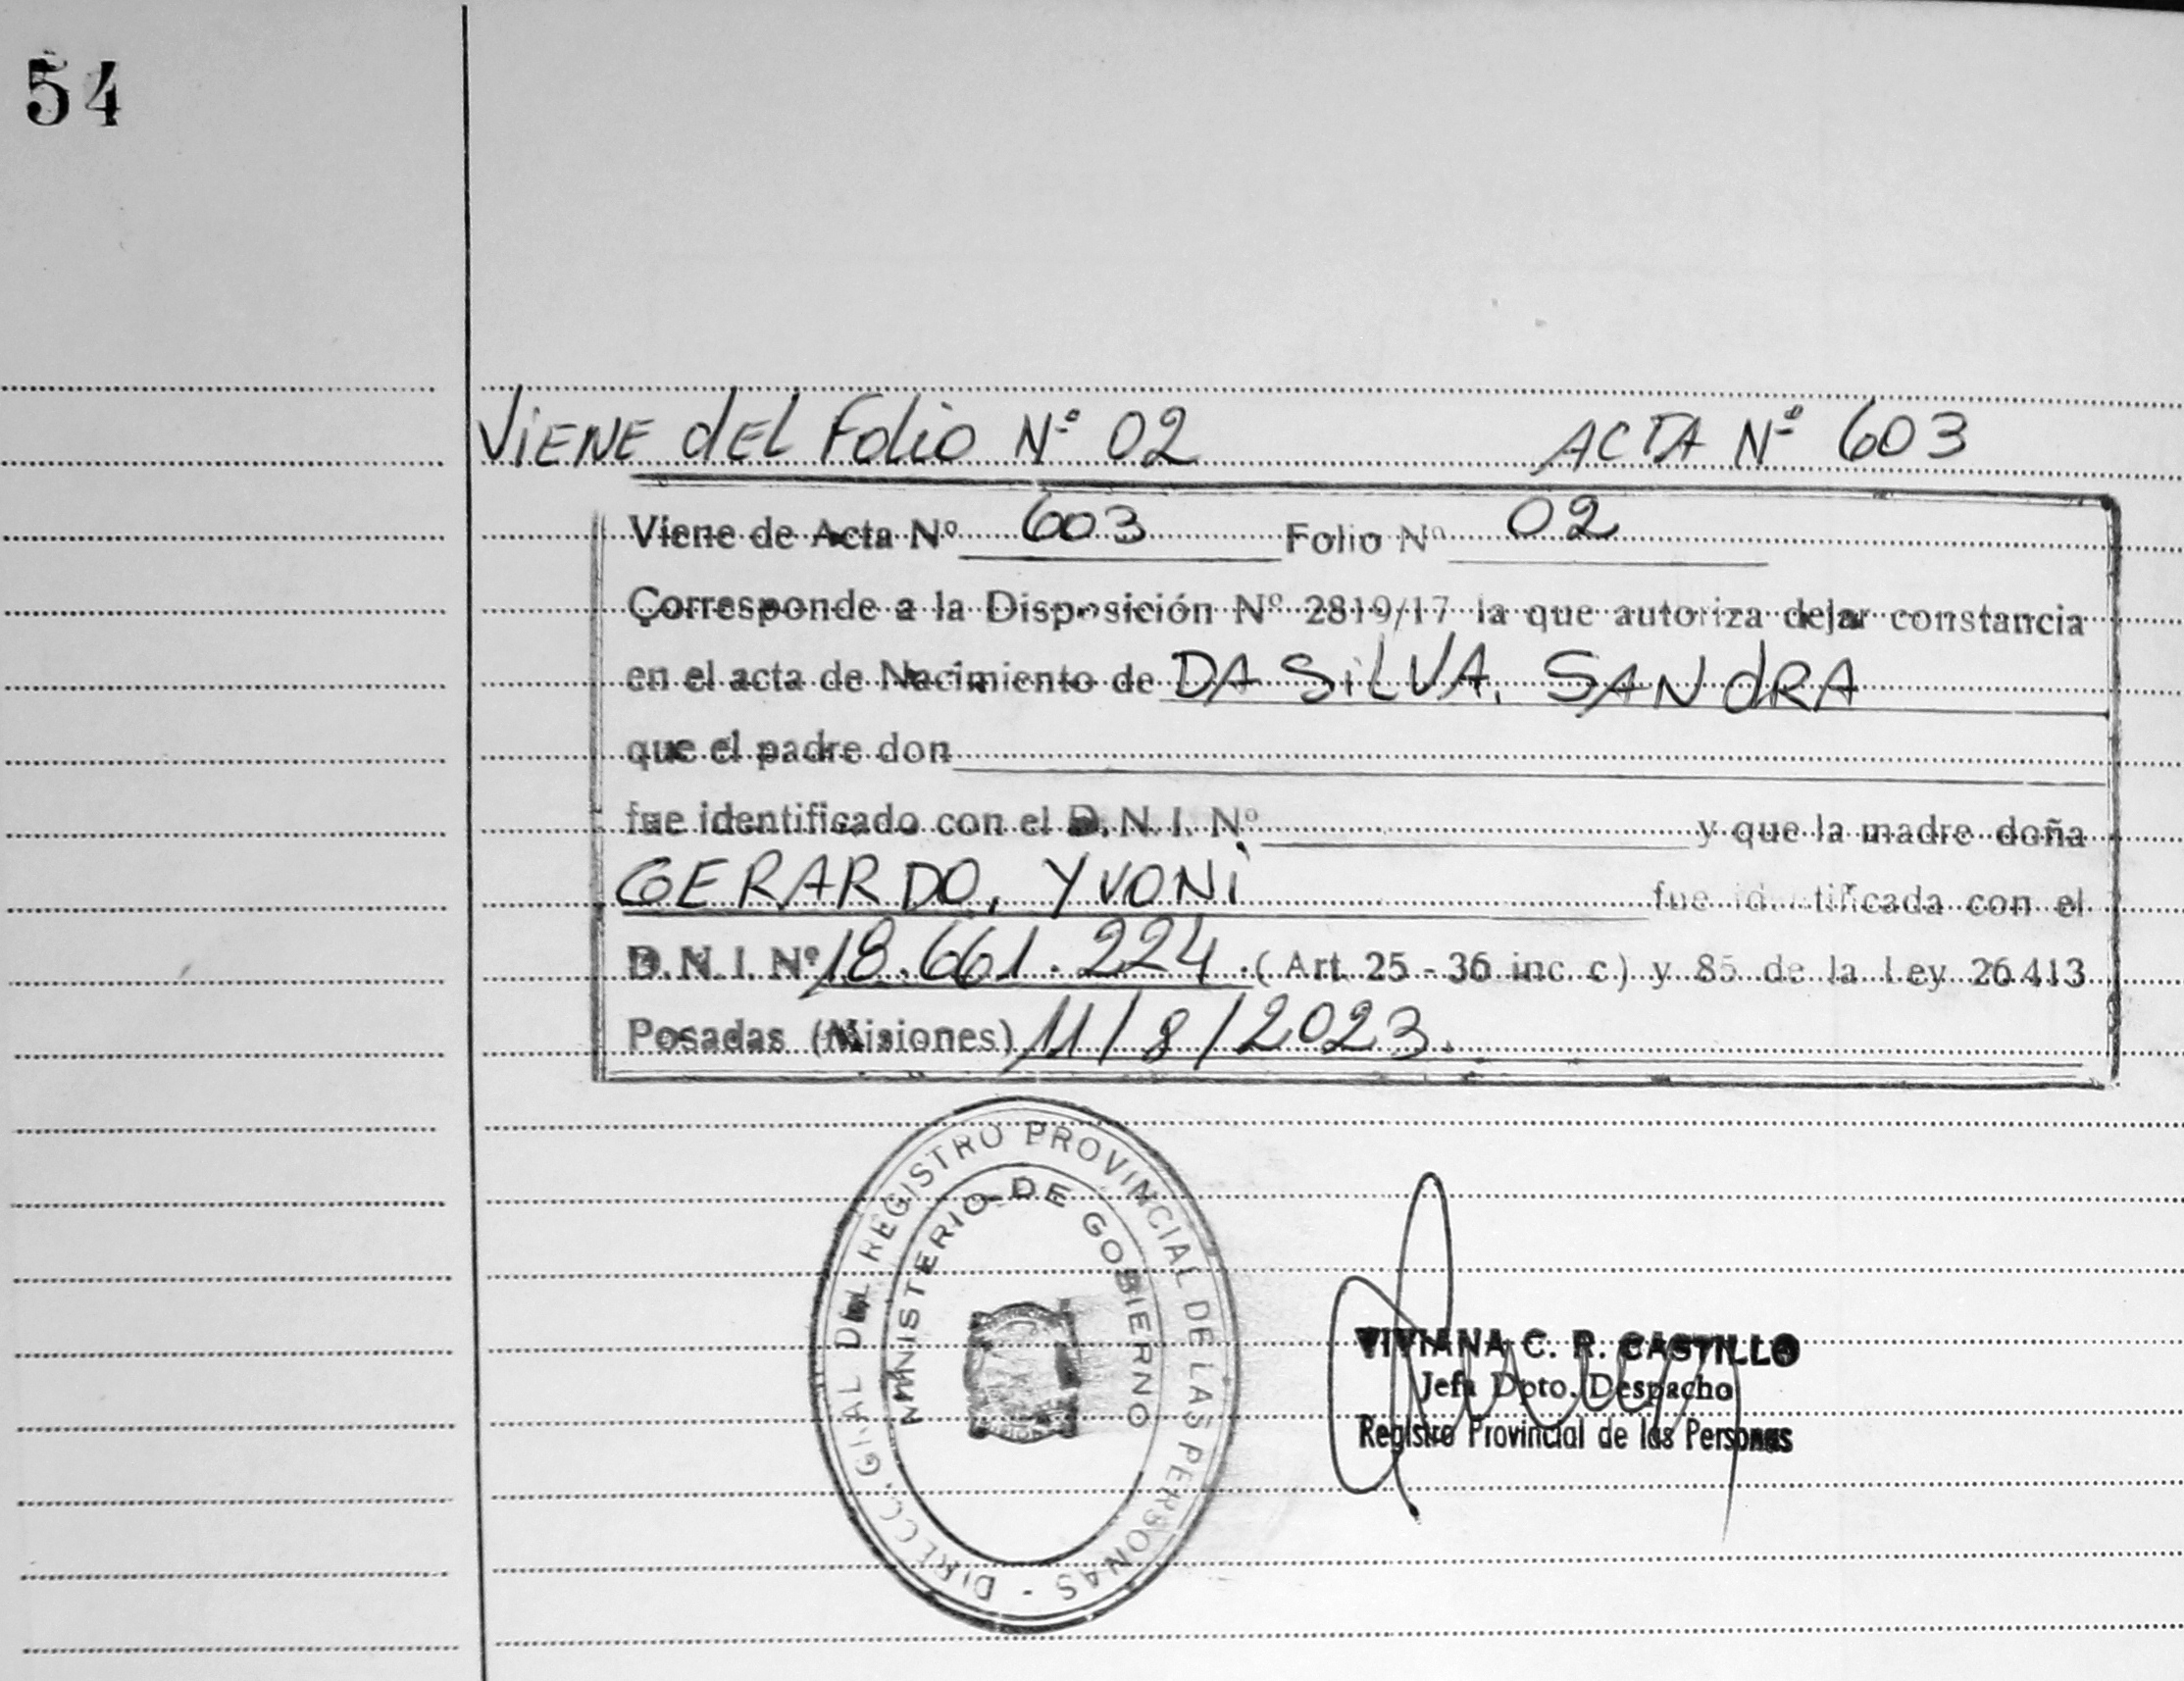 54
ViENE dEL Folio Nº 02 ACTA Nº 603
Viene de Acta Nº 603 Folio Nº 02
Corresponde a la Disposición Nº 2819/17 la que autoriza dejar constancia
en el acta de Nacimiento de DA SiLVA, SANdRA
que el padre don
fue identificado con el D.N.I. Nº y que la madre doña
GERARDO, YVONi fue identificada con el
D.N.I. Nº 18.661.224 (Art. 25 - 36 inc. c) y 85 de la Ley 26.413
Posadas (Misiones) 11/8/2023.
DIRECC. GRAL DEL REGISTRO PROVINCIAL DE LAS PERSONAS -
MINISTERIO DE GOBIERNO
VIVIANA C. R. CASTILLO
Jefa Dpto. Despacho
Registro Provincial de las Personas